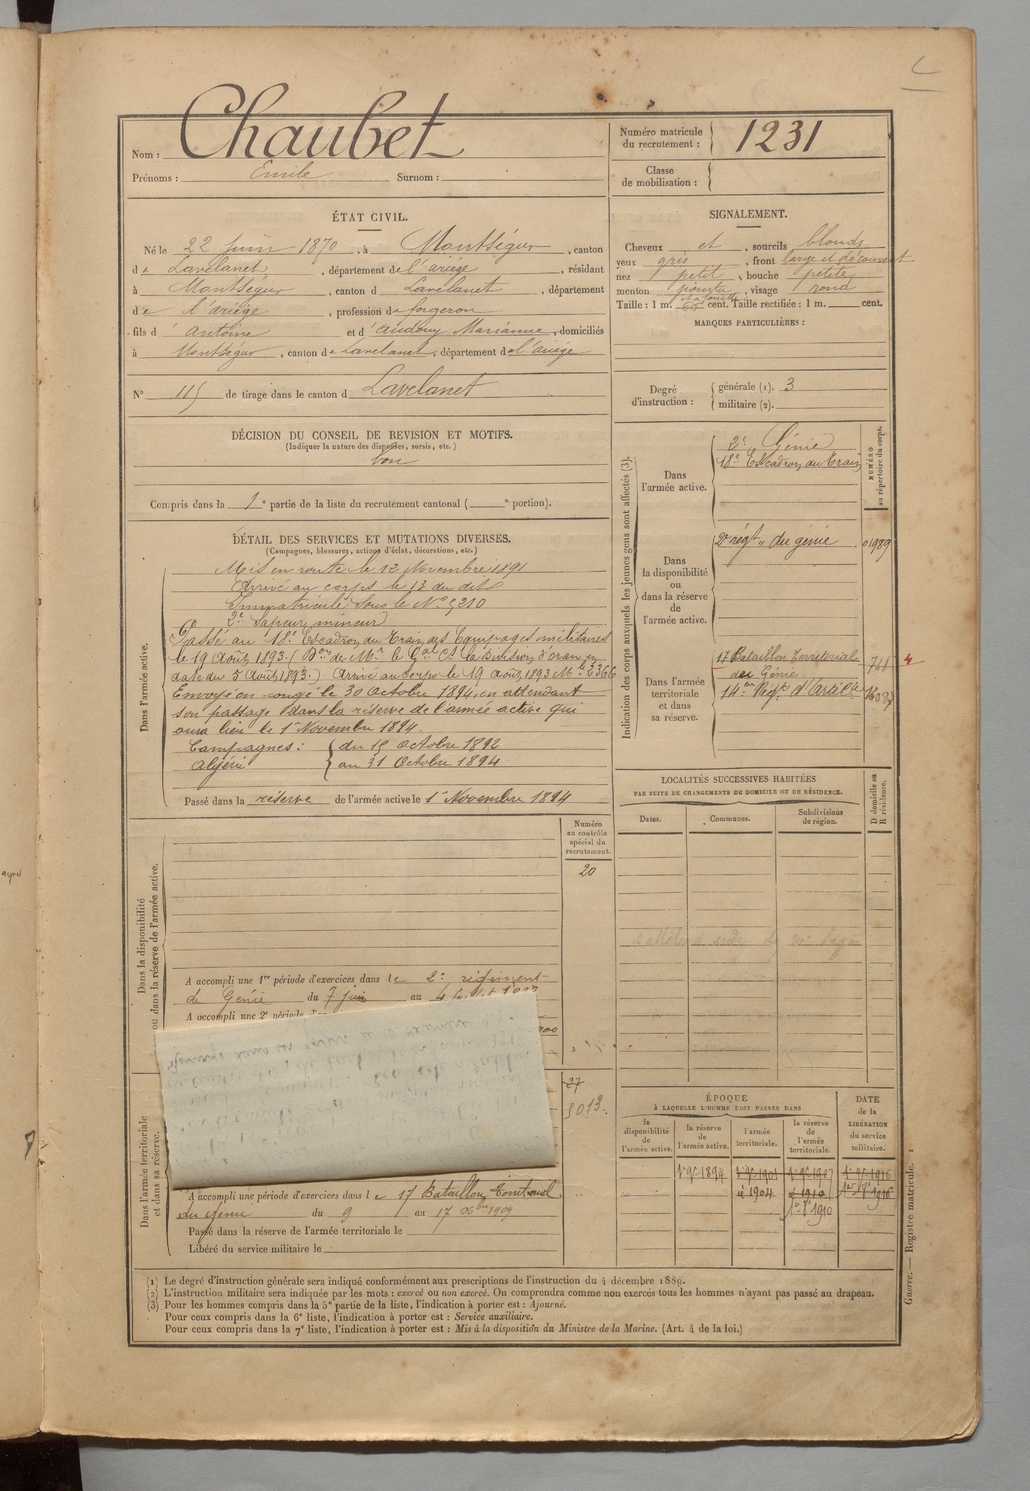 Nom : Chaubet
Prénoms : Emile Surnom :
Numéro matricule du recrutement : 1231
Classe de mobilisation :
ÉTAT CIVIL.
Né le 22 juin 1870, à Montségur, canton
de Lavelanet, département de l'ariège, résidant
à Montségur, canton d Lavelanet, département
de l'ariège, profession de forgeron
fils d' Antoine et d' Audouy Marianne, domiciliés
à Montségur, canton de Lavelanet, département de l'ariège
N° 115 de tirage dans le canton d Lavelanet
SIGNALEMENT.
Cheveux et, sourcils blonds
yeux gris, front large et découvert
nez petit, bouche petite
menton pointu, visage rond
Taille : 1 m. 66 cent. Taille rectifiée : 1 m. cent.
MARQUES PARTICULIÈRES :
Degré d'instruction : générale (1). 3
militaire (2).
DÉCISION DU CONSEIL DE REVISION ET MOTIFS.
(Indiquer la nature des dispenses, sursis, etc.)
bon
Compris dans la 1e partie de la liste du recrutement cantonal ( e portion).
DÉTAIL DES SERVICES ET MUTATIONS DIVERSES.
(Campagnes, blessures, actions d'éclat, décorations, etc.)
Dans l'armée active.
Mis en route le 12 Novembre 1891
Arrivé au corps le 13 du dit
Immatriculé sous le N° 5210
2e Sapeur mineur
Passé au 18e Escadron du Train des Equipages militaires
le 19 Août 1893. (Don de Mr le Gal Ct la Division d'oran en
date du 5 Août 1893.) Arrivé au corps le 19 Août 1893 Mle 3366
Envoyé en congé le 30 Octobre 1894, en attendant
son passage dans la réserve de l'armée active qui
aura lieu le 1er Novembre 1894.
Campagnes : du 15 Octobre 1892
Algérie au 31 Octobre 1894
Passé dans la réserve de l'armée active le 1er Novembre 1894
Indication des corps auxquels les jeunes gens sont affectés (3).
NUMÉRO au répertoire du corps.
Dans l'armée active.
2e Génie
18e Escadron du Train
Dans la disponibilité ou dans la réserve de l'armée active.
2e régt du génie 01989
Dans l'armée territoriale et dans sa réserve.
17 Bataillon territorial 744 4
du Génie
14e Régt d'Artillerie
LOCALITÉS SUCCESSIVES HABITÉES
PAR SUITE DE CHANGEMENTS DE DOMICILE OU DE RÉSIDENCE.
D domicile ou R résidence.
Dates. Communes. Subdivisions de région.
Numéro au contrôle spécial du recrutement.
20
Dans la disponibilité ou dans la réserve de l'armée active.
A accompli une 1re période d'exercices dans le 2e régiment
de Génie du 7 juin au 4
A accompli une 2e
27
5013
Dans l'armée territoriale et dans sa réserve.
A accompli une période d'exercices dans le 17 Bataillon Territorial
du Génie du 9 au 17 1909
Passé dans la réserve de l'armée territoriale le
Libéré du service militaire le
ÉPOQUE
À LAQUELLE L'HOMME DOIT PASSER DANS
DATE de la LIBÉRATION du service militaire.
la disponibilité de l'armée active.
la réserve de l'armée active.
l'armée territoriale.
la réserve de l'armée territoriale.
1er 9bre 1894 1er 9bre 1901 1er 9bre 1907 1er 9bre 1916
1904 1910
1910
(1) Le degré d'instruction générale sera indiqué conformément aux prescriptions de l'instruction du 4 décembre 1889.
(2) L'instruction militaire sera indiquée par les mots : exercé ou non exercé. On comprendra comme non exercés tous les hommes n'ayant pas passé au drapeau.
(3) Pour les hommes compris dans la 5e partie de la liste, l'indication à porter est : Ajourné.
Pour ceux compris dans la 6e liste, l'indication à porter est : Service auxiliaire.
Pour ceux compris dans la 7e liste, l'indication à porter est : Mis à la disposition du Ministre de la Marine. (Art. 4 de la loi.)
Guerre. — Registre matricule. 1